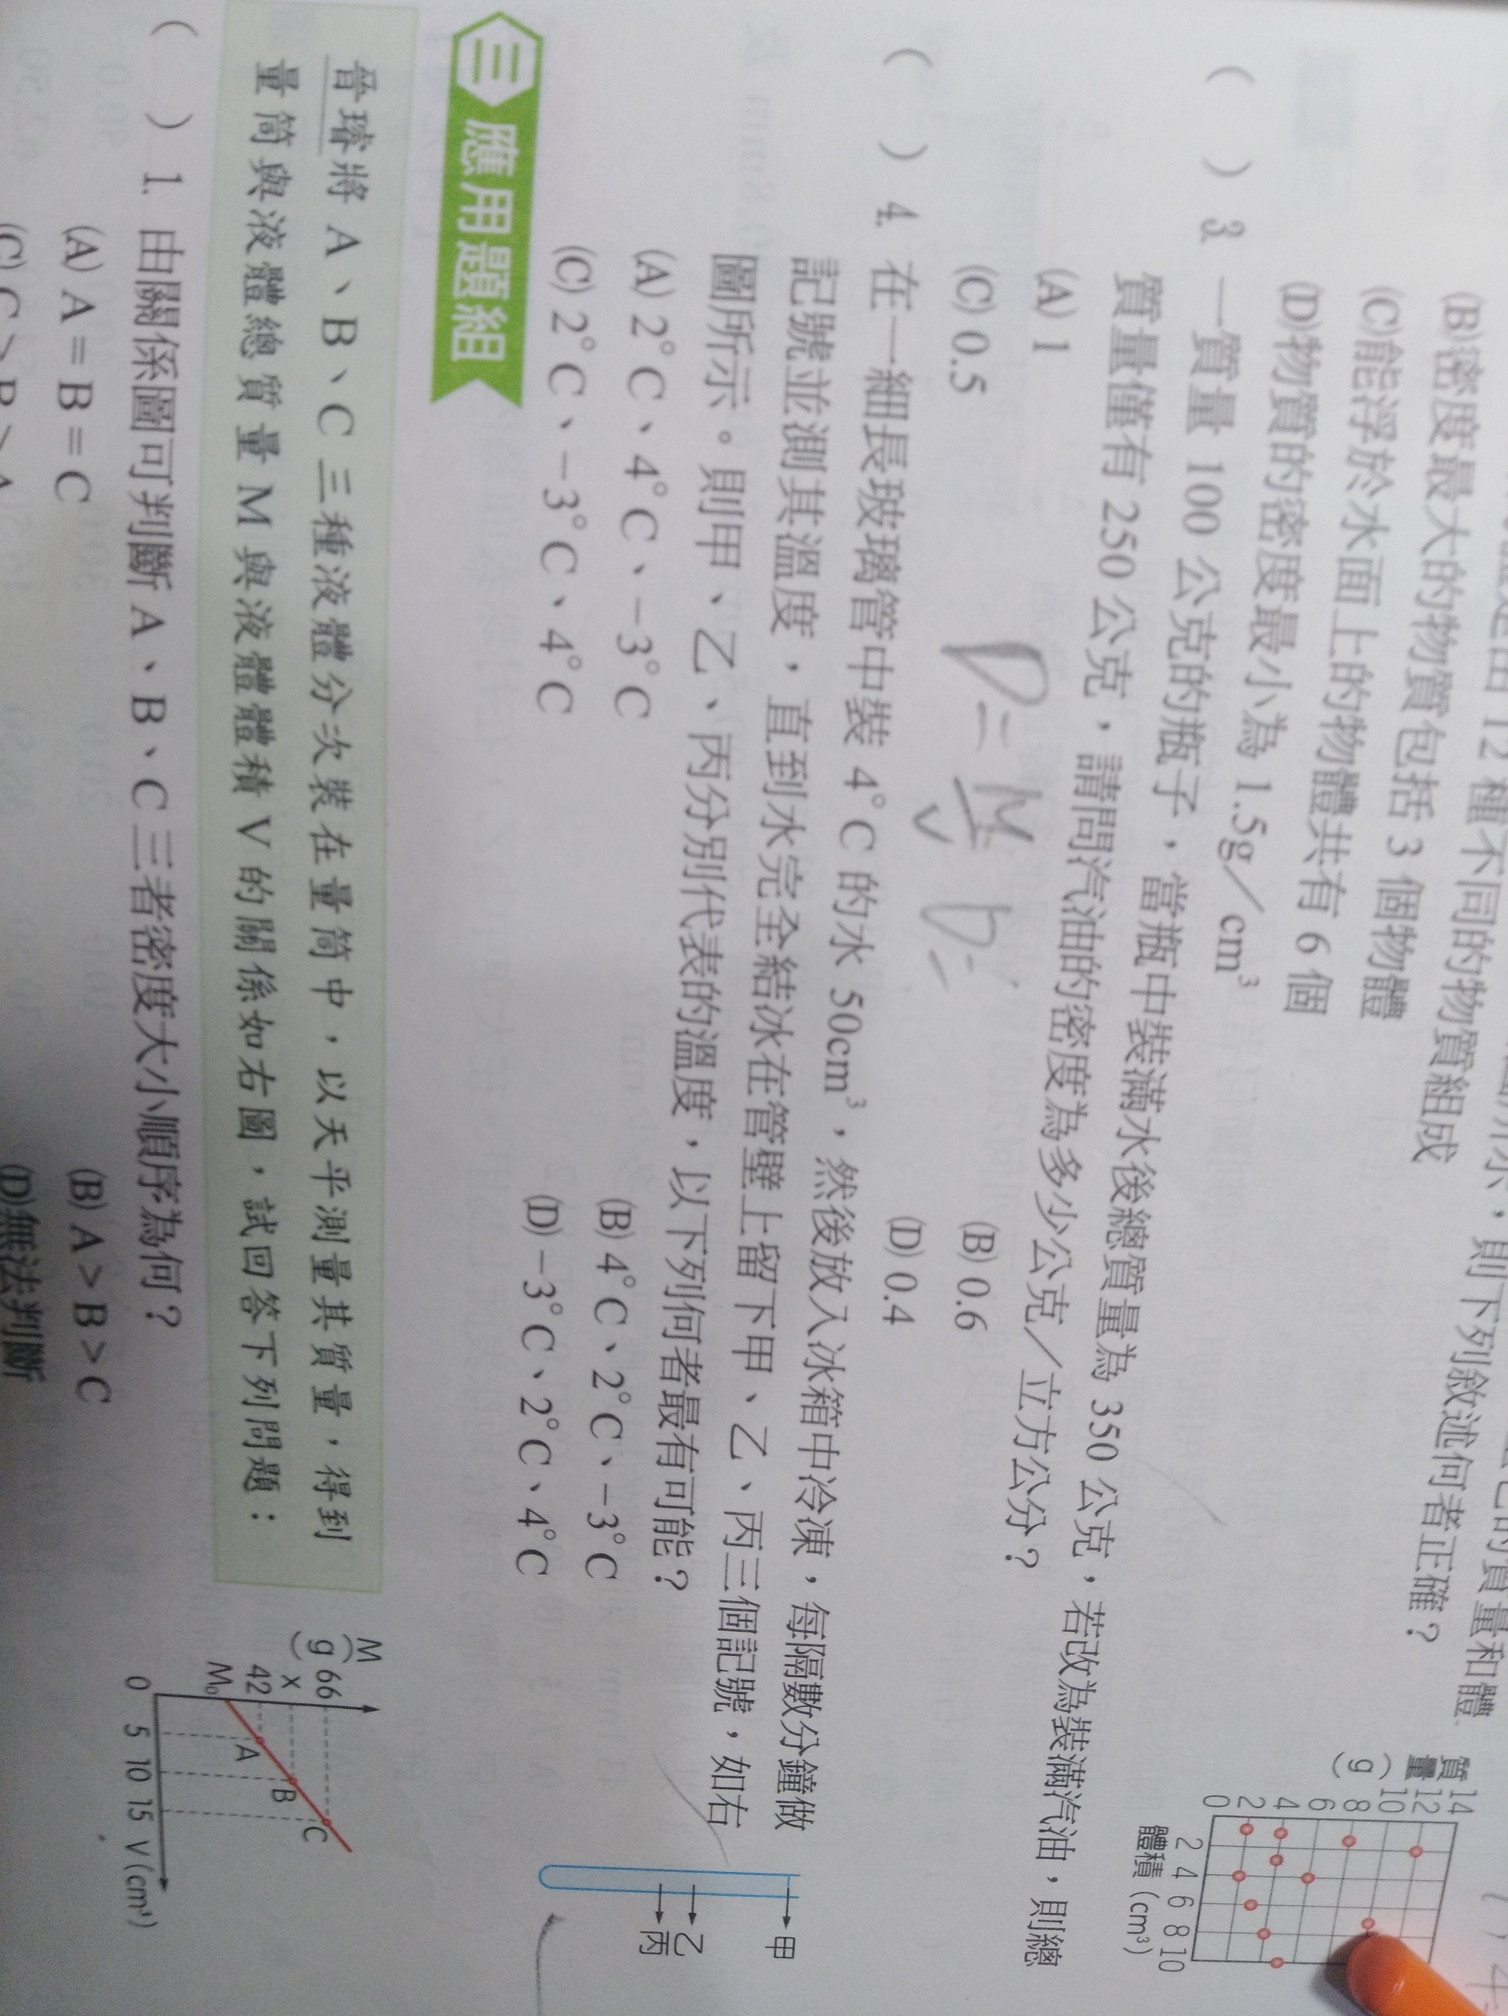 12 種不同的物質組成
則下列敘述何者正確？
(B)密度最大的物質包括 3 個物體
(C)能浮於水面上的物體共有 6 個
(D)物質的密度最小為 1.5g／cm³
質量（g）
14
12
10
8
6
4
2
0
2 4 6 8 10
體積（cm³）
（　）3. 一質量 100 公克的瓶子，當瓶中裝滿水後總質量為 350 公克，若改為裝滿汽油，則總
質量僅有 250 公克，請問汽油的密度為多少公克／立方公分？
(A) 1
(B) 0.6
(C) 0.5
(D) 0.4
D=M/V D=
（　）4. 在一細長玻璃管中裝 4°C 的水 50cm³，然後放入冰箱中冷凍，每隔數分鐘做
記號並測其溫度，直到水完全結冰在管壁上留下甲、乙、丙三個記號，如右
圖所示。則甲、乙、丙分別代表的溫度，以下列何者最有可能？
(A) 2°C、4°C、−3°C
(B) 4°C、2°C、−3°C
(C) 2°C、−3°C、4°C
(D) −3°C、2°C、4°C
甲
乙
丙
三 應用題組
晉璿將 A、B、C 三種液體分次裝在量筒中，以天平測量其質量，得到
量筒與液體總質量 M 與液體體積 V 的關係如右圖，試回答下列問題：
M（g）
66
X
42
M₀
A
B
C
0 5 10 15 V (cm³)
（　）1. 由關係圖可判斷 A、B、C 三者密度大小順序為何？
(A) A＝B＝C
(B) A＞B＞C
(C) C＞B＞A
(D)無法判斷